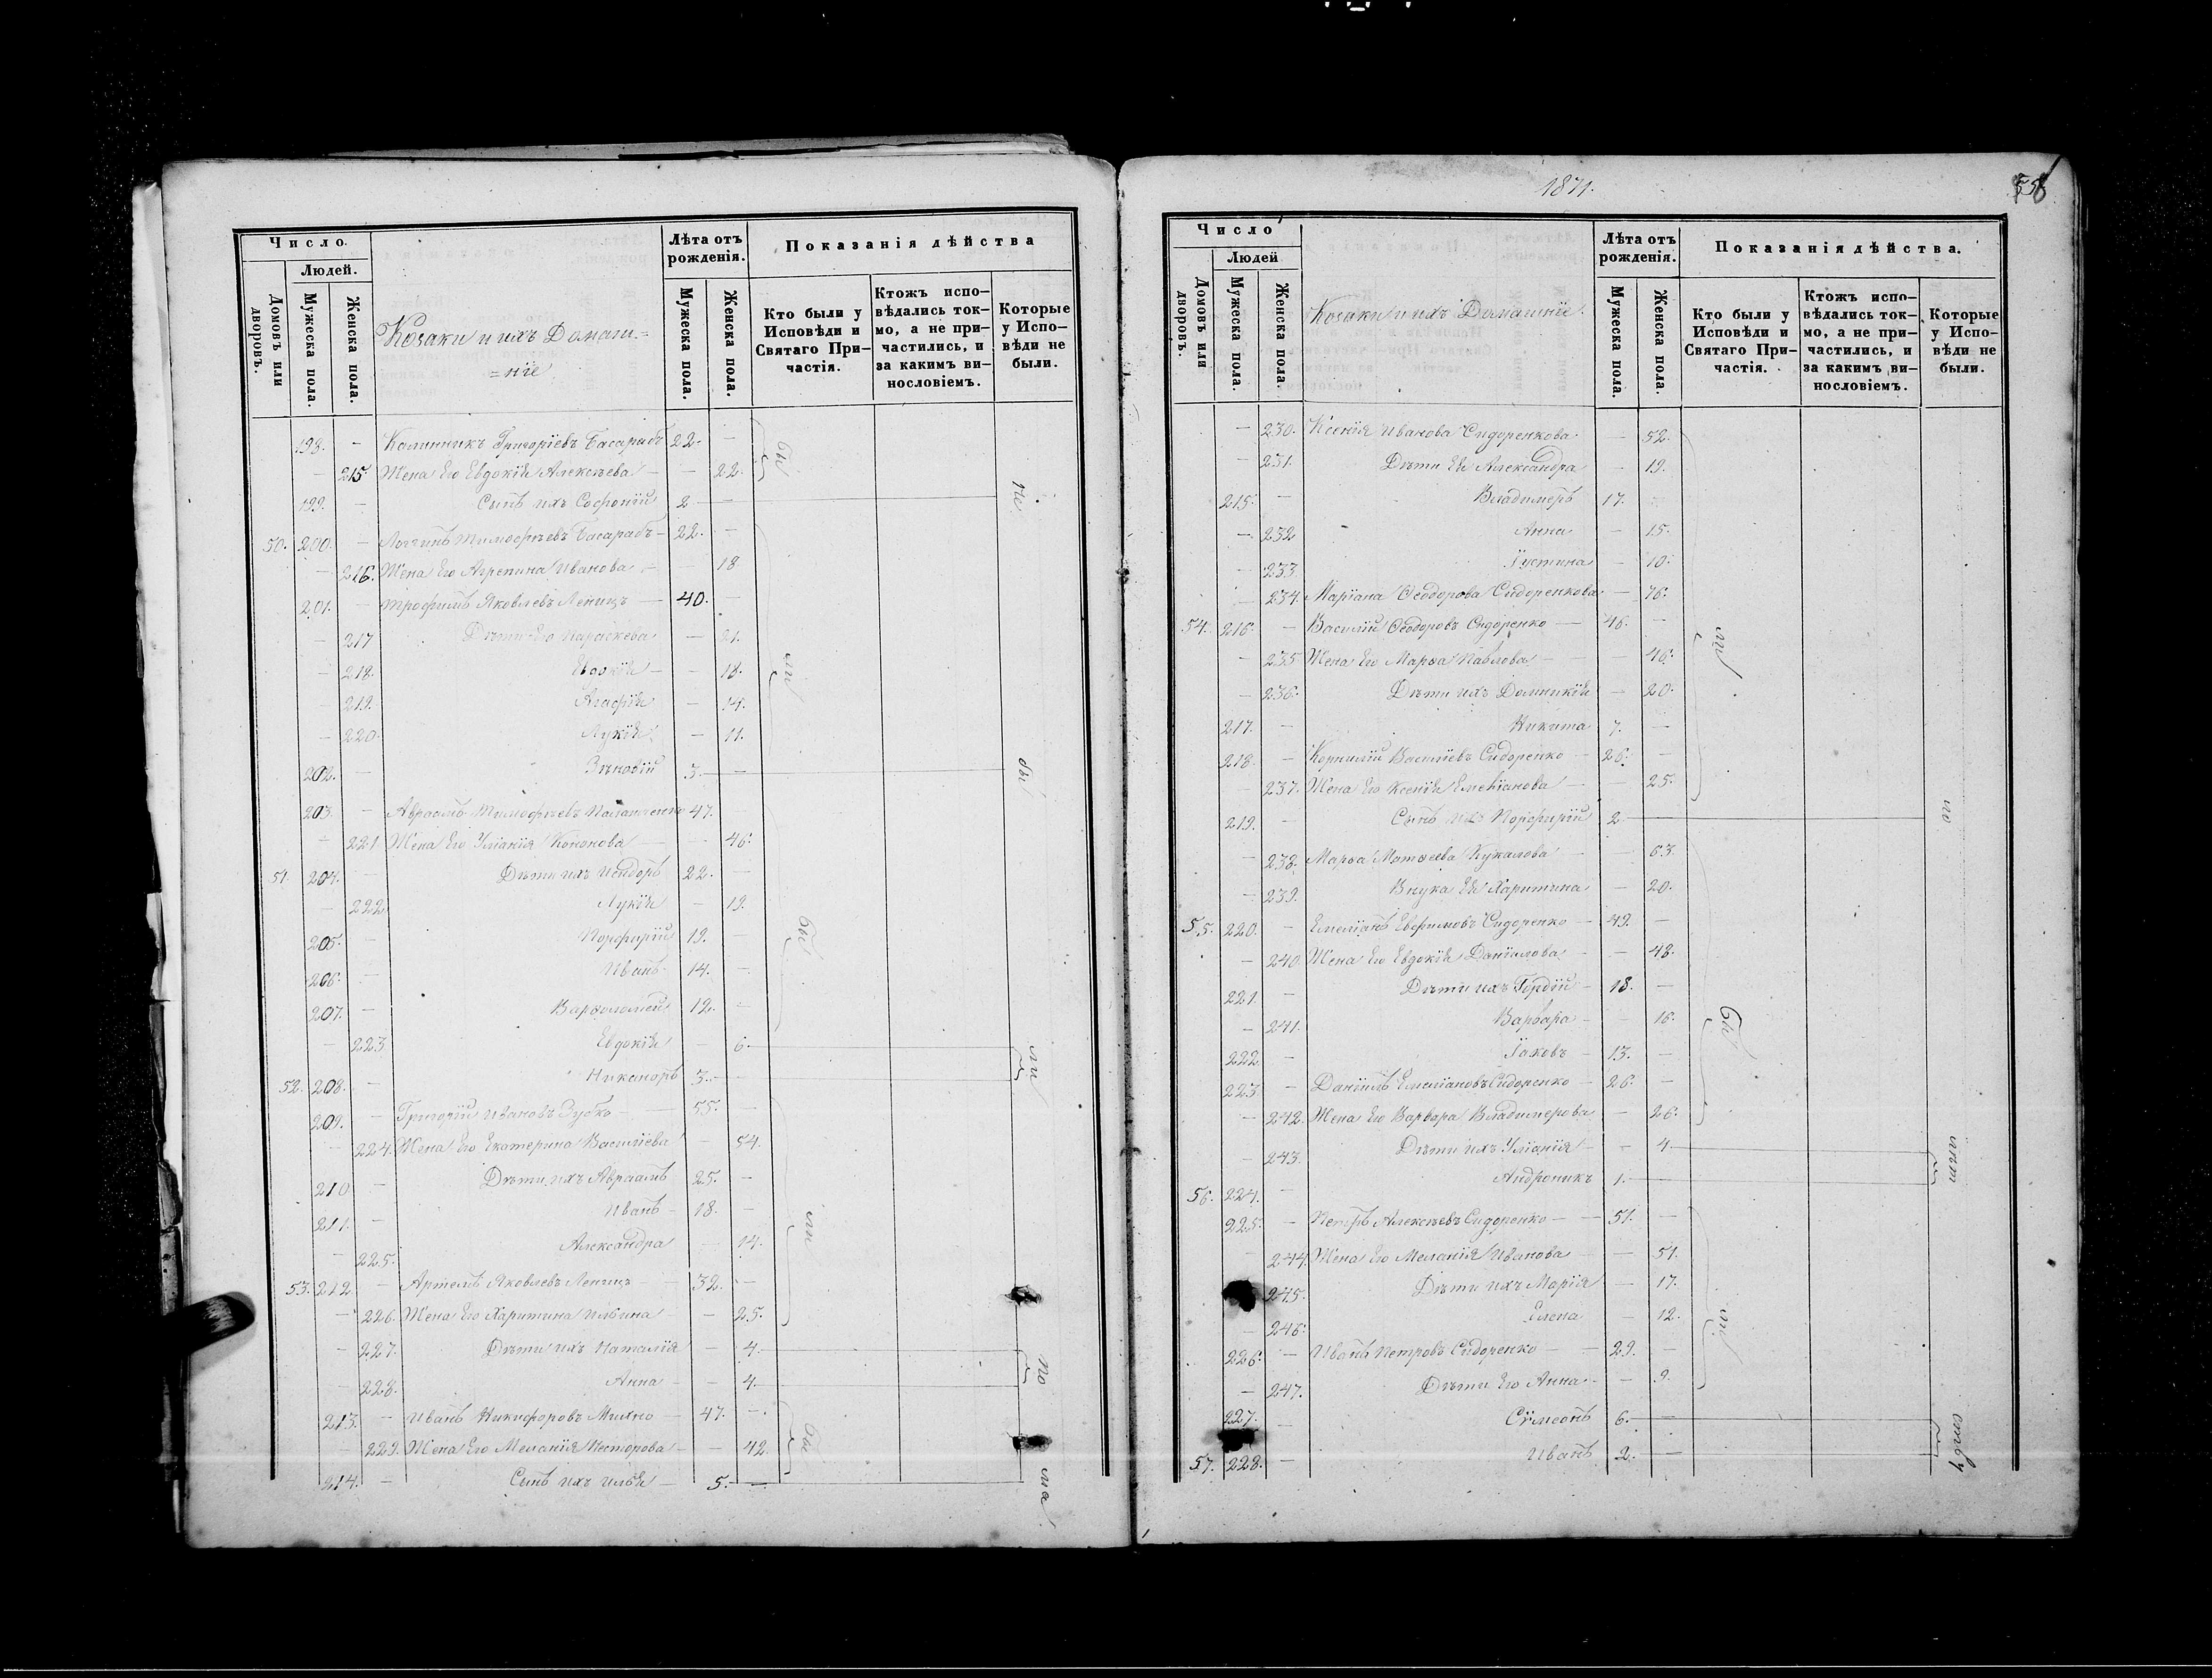 1871.
58
Число.
Людей.
Домовъ или дворовъ.
Мужеска пола.
Женска пола.
Козаки и ихъ Домаш=
=ніе
Лѣта отъ рожденія.
Мужеска пола.
Женска пола.
Показанія дѣйства
Кто были у Исповѣди и Святаго Причастія.
Ктожъ испо-
вѣдались ток-
мо, а не при-
частились, и
за какимъ ви-
нословіемъ.
Которые
у Испо-
вѣди не
были.
198. — Калинникъ Григоріевъ Басарабъ 22. —
— 215. Жена Его Евдокія Алексѣева — — 22.
199. — Сынъ ихъ Софроній 2 —
50. 200. — Логгинъ Тимофѣевъ Басарабъ — 22. —
— 216. Жена Его Агрепина Иванова — — 18
201. — Трофимъ Яковлевъ — 40. —
— 217 Дѣти Его Параскева — 21.
— 218. Евдокія — — 18.
— 219. Агафія — 14.
— 220. Лукія — 11.
202. — Зѣновій 3. —
203. — Авраамъ Тимофѣевъ 47.
— 221 Жена Его Уліанія Кононова — — 46.
51. 204. — Дѣти ихъ Исидоръ 22. —
— 222 Лукія — 19.
205. — Порфирій 19. —
206. — Иванъ 14. —
207. — Варѳоломей 12. —
— 223 Евдокія — 6.
52. 208. — Никаноръ 3. —
209. — Григорій Ивановъ Зубко — 55. —
— 224. Жена Его Екатерина Василіева — 54.
210 — Дѣти ихъ Авраамъ 25. —
211. — Иванъ — 18. —
— 225. Александра — 14.
53. 212 — Артемъ Яковлевъ — 32. —
— 226. Жена Его Харитина Ильина — — 25.
— 227. Дѣти ихъ Наталія — 4.
228. Анна — — 4.
213. — Иванъ Никифоровъ Михно — 47. —
229. Жена Его Меланія Несторова — — 42.
214. — Сынъ ихъ Илья — 5. —
Число
Людей
Домовъ или дворовъ.
Мужеска пола.
Женска пола.
Козаки и ихъ Домашніе.
Лѣта отъ рожденія.
Мужеска пола.
Женска пола.
Показанія дѣйства.
Кто были у Исповѣди и Святаго Причастія.
Ктожъ испо-
вѣдались ток-
мо, а не при-
частились, и
за какимъ ви-
нословіемъ.
Которые
у Испо-
вѣди не
были.
— 230. Ксенія Иванова Сидоренкова — 52.
— 231. Дѣти Ея Александра — 19.
215. — Владимеръ 17.
— 232 Анна — 15.
— 233 Іустина — 10.
— 234. Маріана Ѳеодорова Сидоренкова — 76.
54. 216. — Василій Ѳеодоровъ Сидоренко — 46. —
— 235 Жена Его Марѳа Павлова — — 46.
— 236. Дѣти ихъ Домникія — 20.
217. — Никита 7. —
218. — Корнилій Василіевъ Сидоренко — 26. —
— 237. Жена Его Ксенія Емеліанова — — 25.
219. — Сынъ ихъ Порфирій 2
— 238. Марѳа Матѳеева — — 63.
— 239. Внука Ея Харитина — 20.
55. 220. — Емеліанъ Евфимовъ Сидоренко — 49. —
— 240. Жена Его Евдокія Даніилова — — 48.
221. — Дѣти ихъ Гордій — 18. —
— 241. Варвара — — 16.
222 — Іаковъ — 13. —
223 — Даніилъ Емеліановъ Сидоренко — 26. —
— 242. Жена Его Варвара Владимерова — 26.
— 243. Дѣти ихъ Уліанія — — 4
56. 224. — Андроникъ 1. —
225. — Петръ Алексѣевъ Сидоренко — — 51. —
— 244. Жена Его Меланія Иванова — — 51.
245. Дѣти ихъ Марія — 17.
— 246. Елена — 12.
226. — Иванъ Петровъ Сидоренко — — 29. —
— 247. Дѣти Его Анна — — 9.
227. — Сѵмеонъ 6. —
57. 228. — Иванъ 2. —